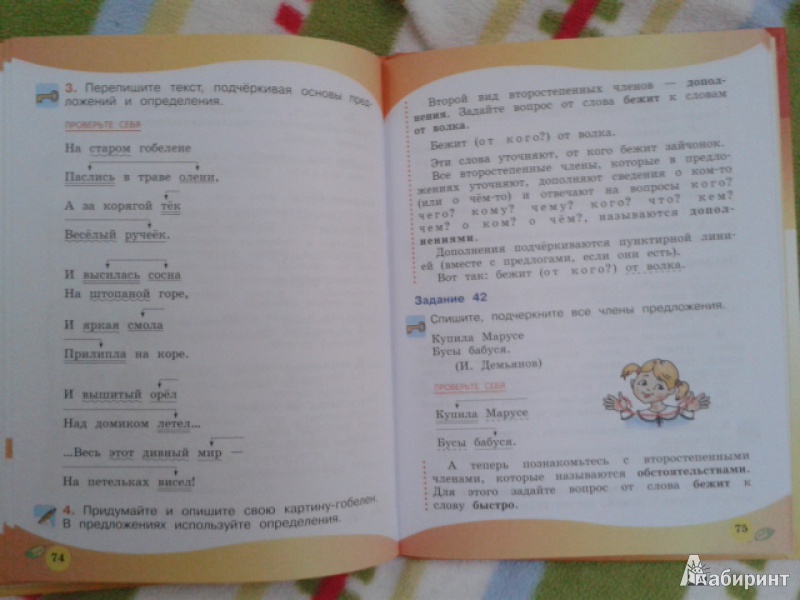 3. Перепишите текст, подчёркивая основы пред-
ложений и определения.
ПРОВЕРЬТЕ СЕБЯ
На старом гобелене
Паслись в траве олени,
А за корягой тёк
Весёлый ручеёк.
И высилась сосна
На штопаной горе,
И яркая смола
Прилипла на коре.
И вышитый орёл
Над домиком летел...
...Весь этот дивный мир —
На петельках висел!
4. Придумайте и опишите свою картину-гобелен.
В предложениях используйте определения.
74
Второй вид второстепенных членов — допол-
нения. Задайте вопрос от слова бежит к словам
от волка.
Бежит (от кого?) от волка.
Эти слова уточняют, от кого бежит зайчонок.
Все второстепенные члены, которые в предло-
жениях уточняют, дополняют сведения о ком-то
(или о чём-то) и отвечают на вопросы кого?
чего? кому? чему? кого? что? кем?
чем? о ком? о чём?, называются допол-
нениями.
Дополнения подчёркиваются пунктирной лини-
ей (вместе с предлогами, если они есть).
Вот так: бежит (от кого?) от волка.
Задание 42
Спишите, подчеркните все члены предложения.
Купила Марусе
Бусы бабуся.
(И. Демьянов)
ПРОВЕРЬТЕ СЕБЯ
Купила Марусе
Бусы бабуся.
А теперь познакомьтесь с второстепенными
членами, которые называются обстоятельствами.
Для этого задайте вопрос от слова бежит к
слову быстро.
75
Лабиринт